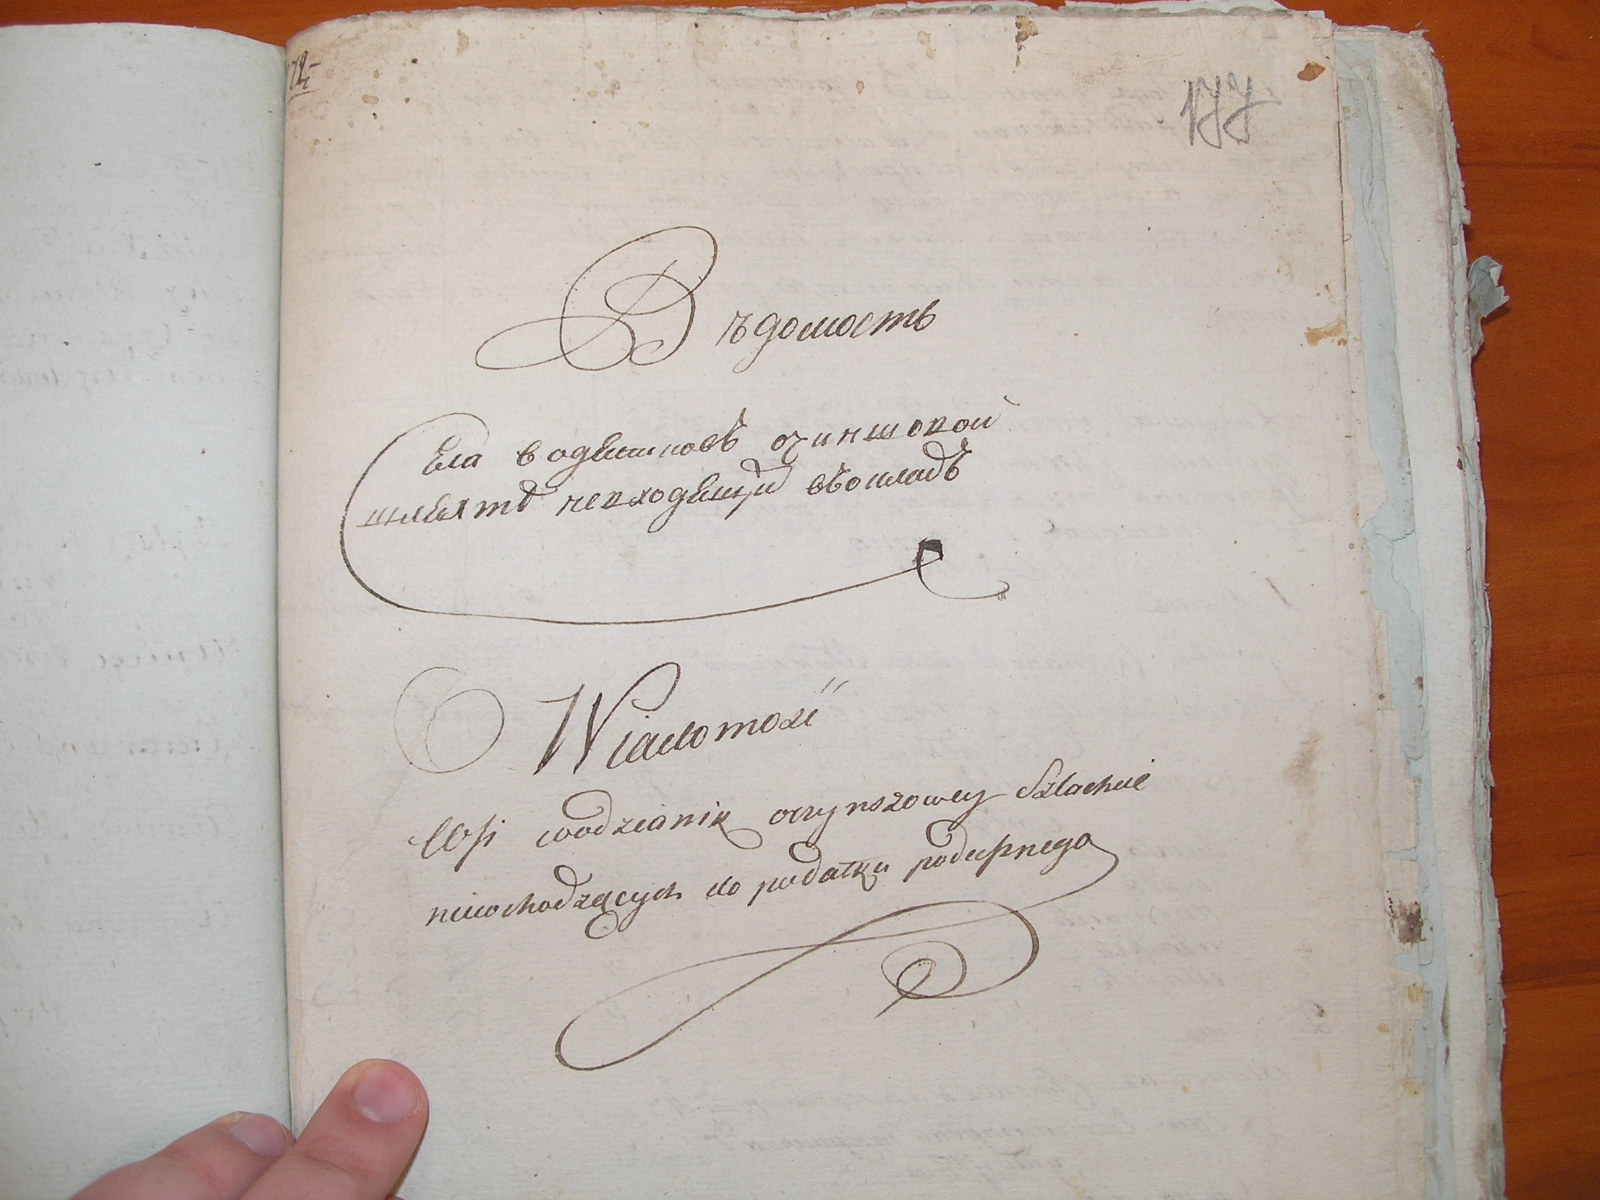 177
Вѣдомость
Села водяниковъ очиншовой
шляхтѣ невходящей въокладъ
Wiadomość
Wsi wodzianik oczynszowey Szlachcie
niewchodzących do podatku podusznego